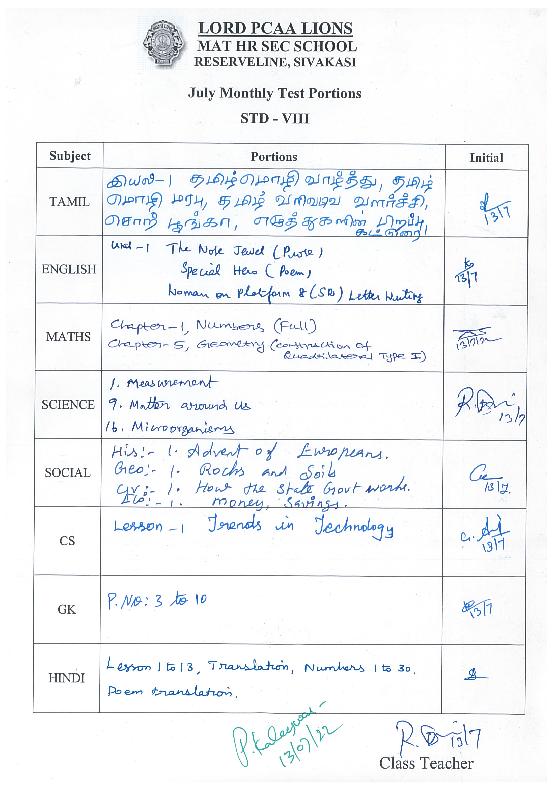 LORD PCAA LIONS
MAT HR SEC SCHOOL
RESERVELINE, SIVAKASI
July Monthly Test Portions
STD - VIII
Subject Portions Initial
TAMIL இயல்-1 தமிழ்மொழி வாழ்த்து, தமிழ்
மொழி மரபு, தமிழ் வரிவடிவ வளர்ச்சி,
சொற் பூங்கா, எழுத்துகளின் பிறப்பு, 13/7
கட்டுரை.
ENGLISH Unit-1 The Nose Jewel (Prose)
Special Hero (Poem) 13/7
Woman on Platform 8 (SR) Letter Writing
MATHS Chapter-1, Numbers (Full)
Chapter-5, Geometry (construction of 13/7/22
Quadrilateral Type I)
SCIENCE 1. Measurement
9. Matter around us 13/7
16. Microorganisms
SOCIAL His:- 1. Advent of Europeans.
Geo:- 1. Rocks and Soils
Civ:- 1. How the State Govt works. 13/7
Eco:- 1. Money, Savings.
CS Lesson-1 Trends in Technology 13/7
GK P.No: 3 to 10 13/7
HINDI Lesson 1 to 13, Translation, Numbers 1 to 30.
Poem translation.
13/07/22 13/7
Class Teacher